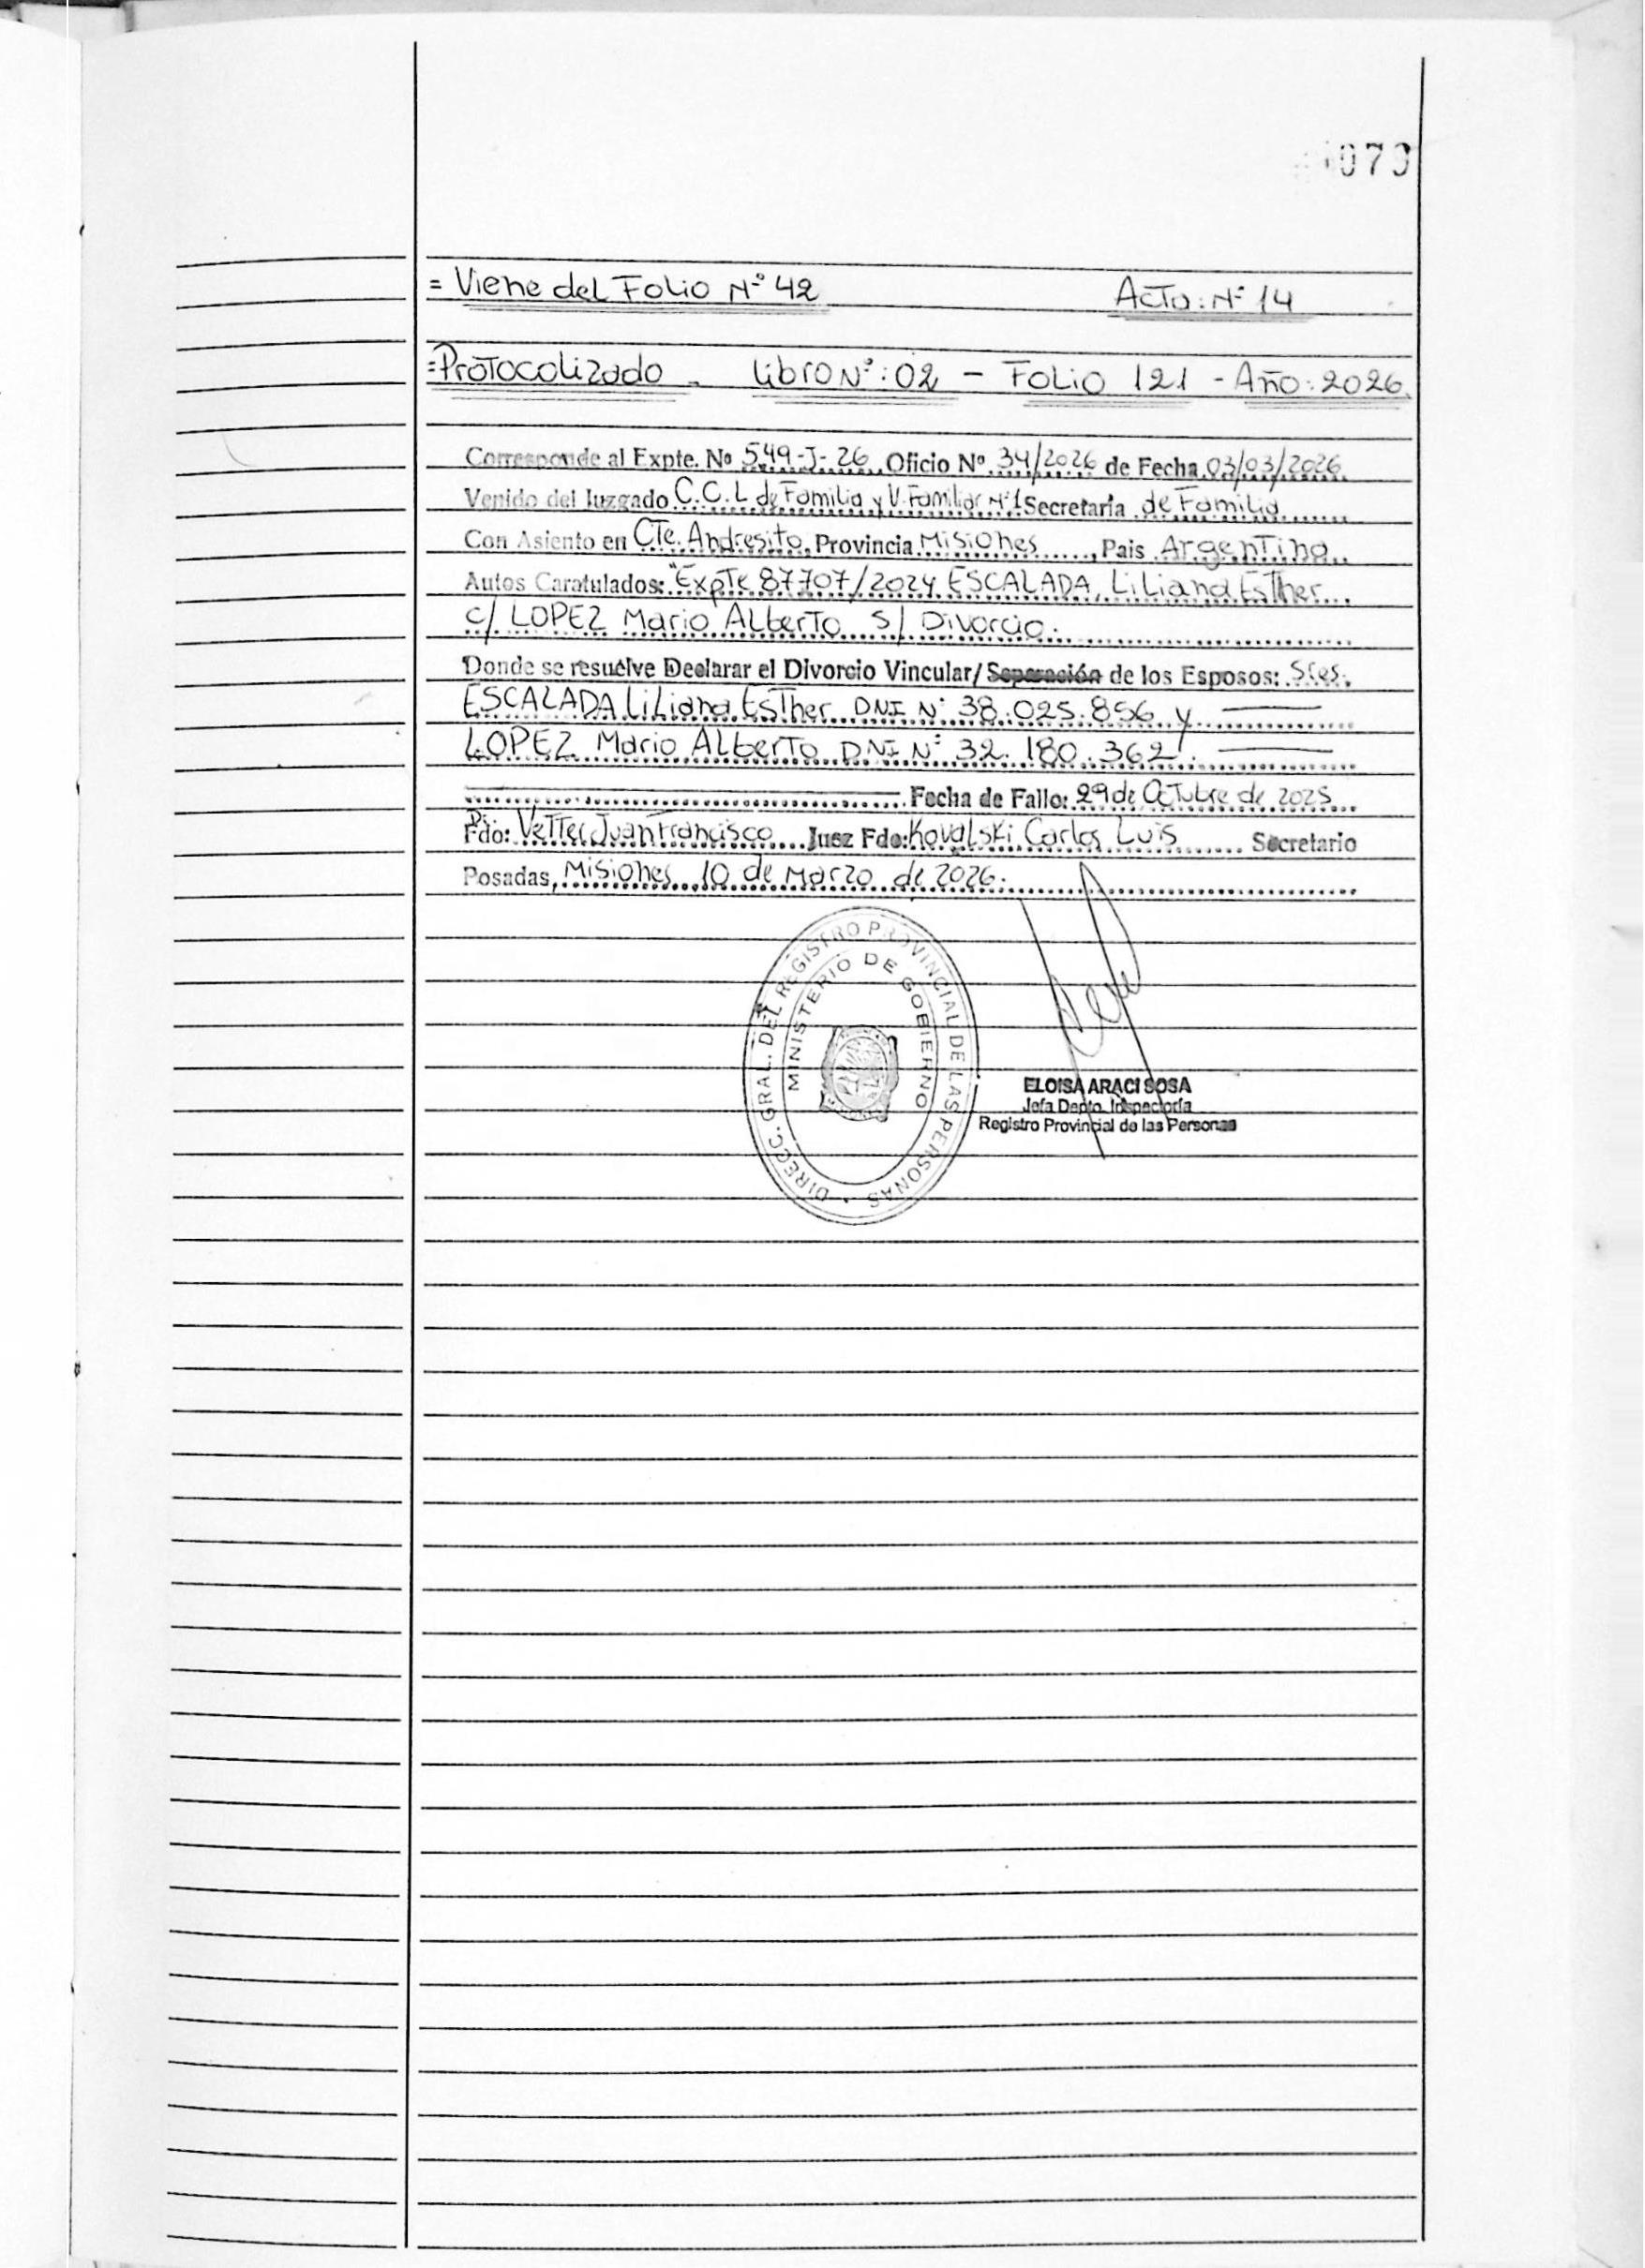 070
= Viene del Folio Nº 42 Acta: Nº 14
= Protocolizado - Libro Nº: 02 - Folio 121 - Año: 2026.
Corresponde al Expte. Nº 549-J-26 Oficio Nº 34/2026 de Fecha 03/03/2026
Venido del Juzgado C.C.L de Familia y V. Familiar Nº1 Secretaria de Familia
Con Asiento en Cte. Andresito, Provincia Misiones, Pais Argentina
Autos Caratulados: "Expte 87707/2024 ESCALADA, Liliana Esther
c/ LOPEZ Mario Alberto s/ Divorcio.
Donde se resuelve Declarar el Divorcio Vincular/Separación de los Esposos: Sres.
ESCALADA Liliana Esther DNI Nº 38.025.856 y
LOPEZ Mario Alberto DNI Nº 32.180.362.
Fecha de Fallo: 29 de Octubre de 2025
Fdo: Dr. Vetter Juan Francisco Juez Fdo: Kovalski Carlos Luis Secretario
Posadas, Misiones 10 de Marzo de 2026.
DIRECC. GRAL. DEL REGISTRO PROVINCIAL DE LAS PERSONAS
MINISTERIO DE GOBIERNO
ELOISA ARACI SOSA
Jefa Depto. Inspectoría
Registro Provincial de las Personas